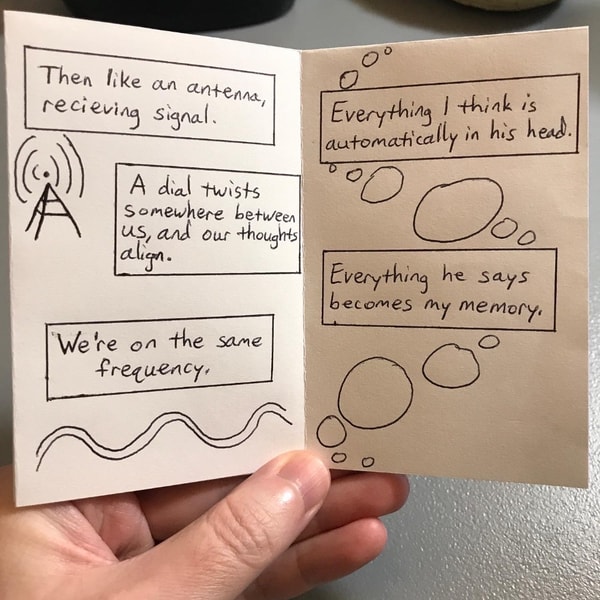 Then like an antenna,
recieving signal.
A dial twists
somewhere between
us, and our thoughts
align.
We're on the same
frequency.
Everything I think is
automatically in his head.
Everything he says
becomes my memory.